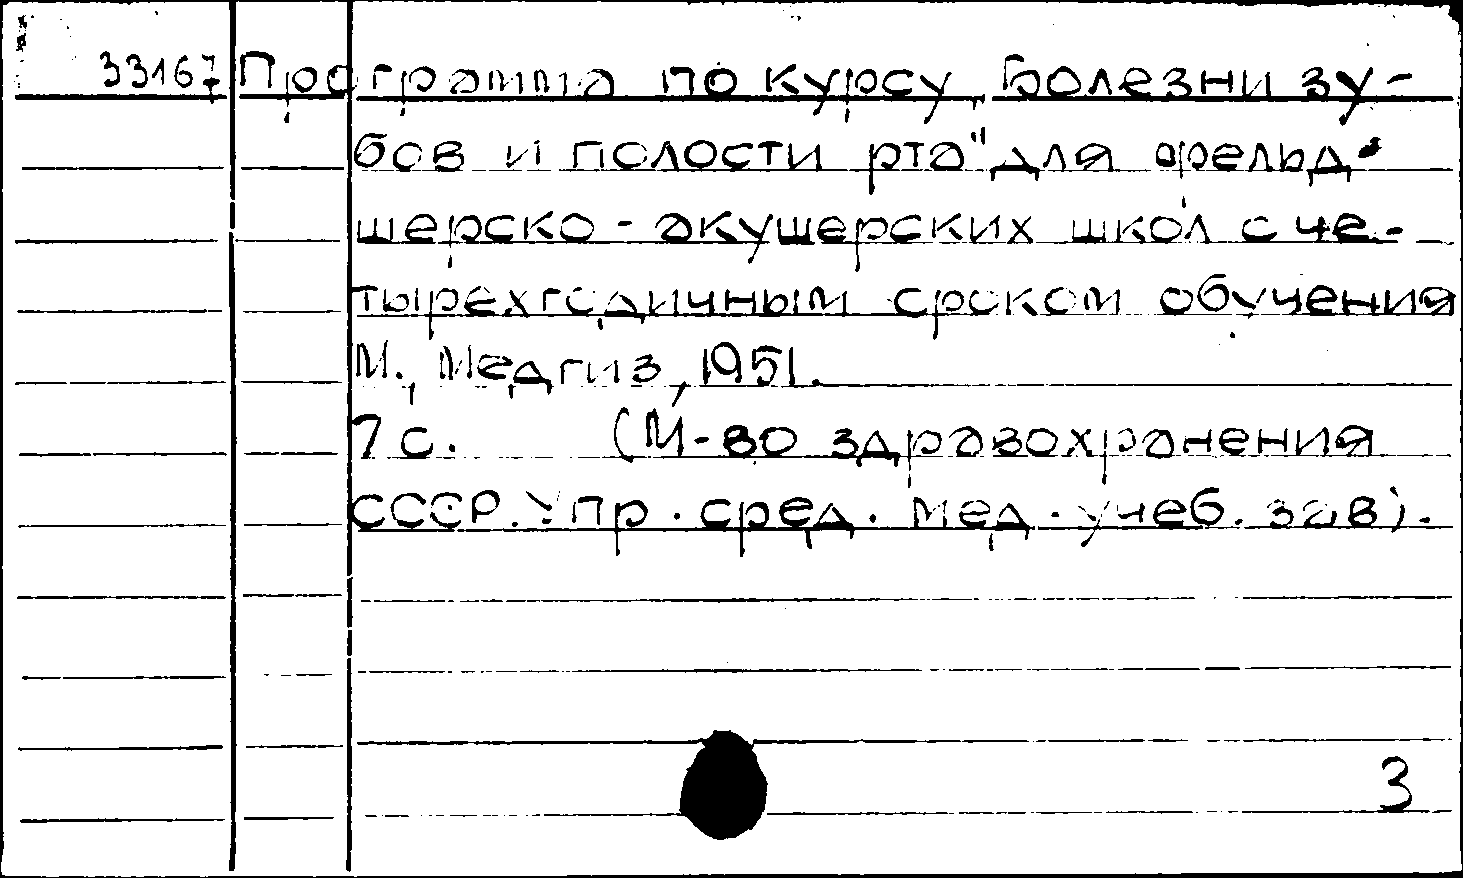 33167 Программа по курсу „Болезни зу-
бов и полости рта" для фельд-
шерско-акушерских школ с че-
тырехгодичным сроком обучения
М., Медгиз, 1951.
7 с. (М-во здравохранения
СССР. Упр. сред. мед. учеб. зав).
3